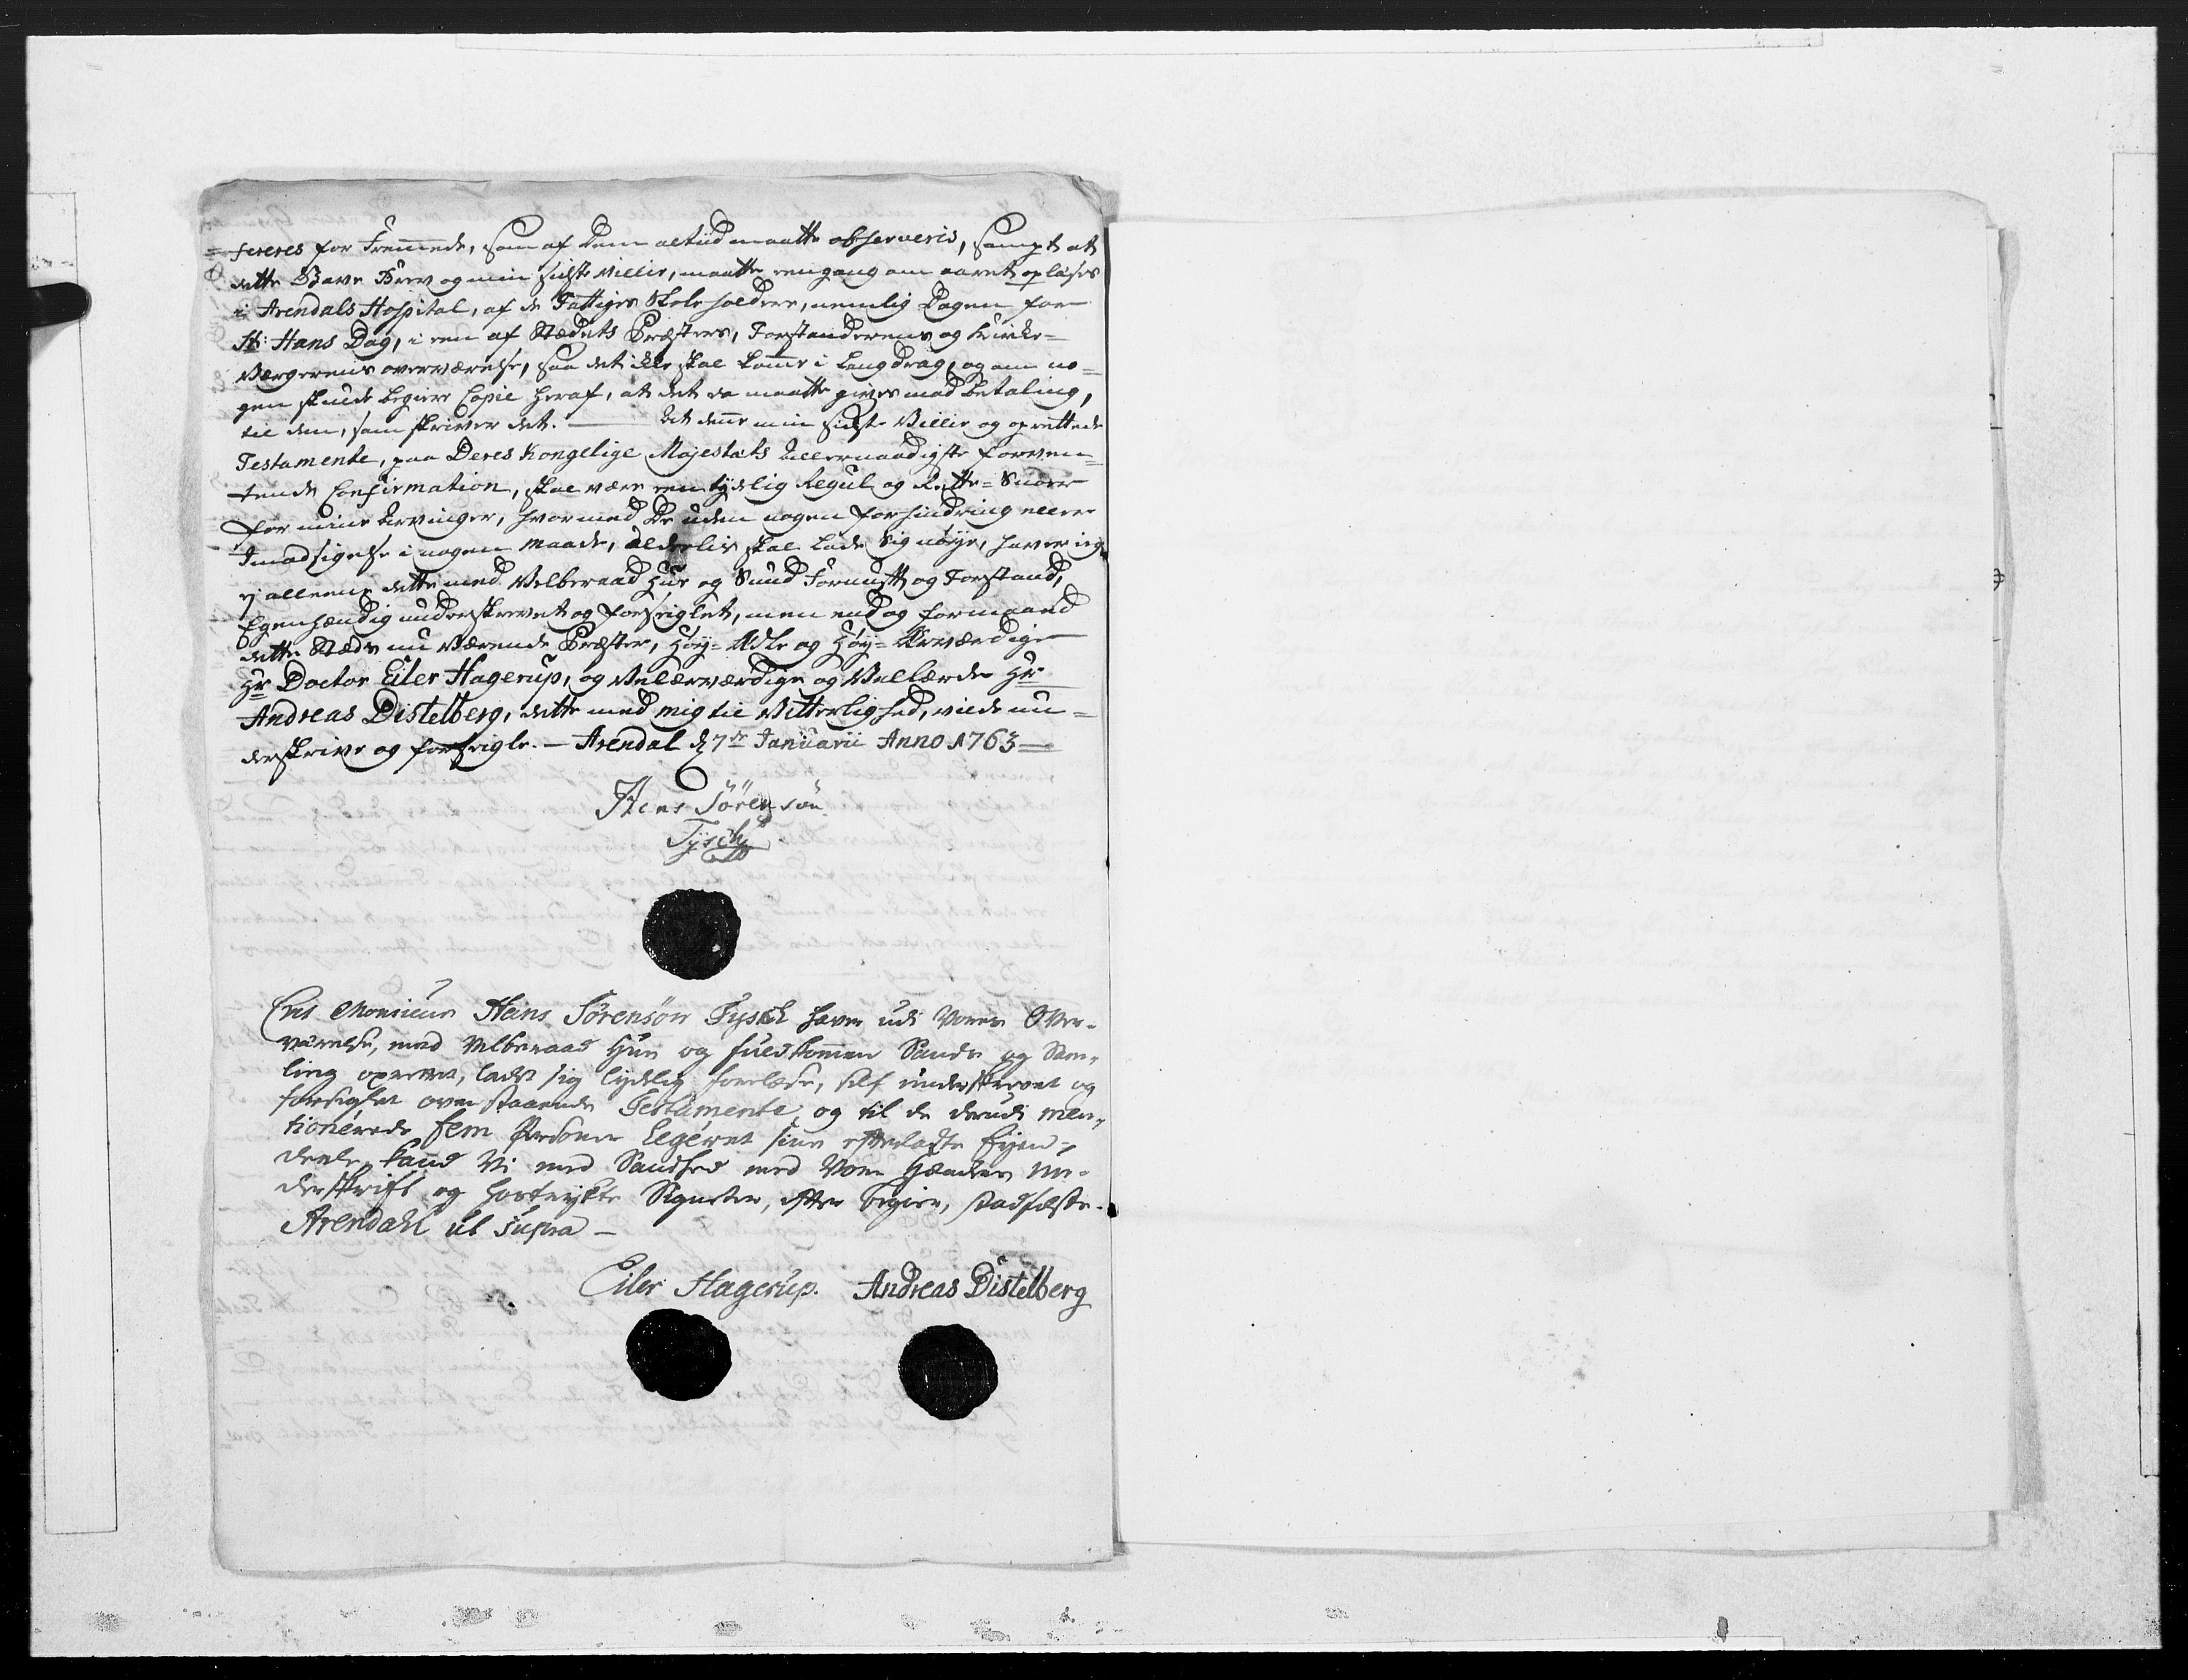 =fereres for Fremmede, som af dem altiid maatte observeris, sampt at
dette Gave Brev og min sidste Villie, maatte eengang om aaret oplæses
i Arendals Hospital, af de Fattiges Skoleholdere, nemlig Dagen for
St: Hans Dag, i een af Stædets Præsters, Forstanderens og Kirke=
Værgerens overværelse, saa det ikke skal komme i Langdrag, og om no=
gen skulde begiere Copie heraf, at det da maatte gives mod betaling,
til dem, som skriver det. — At denne min sidste Villie og oprettede
Testamente, paa Deres Kongelige Majestæts Allernaadigste forven=
tende Confirmation, skal være een tydelig Regul og Rette=Snoer
for mine Arvinger, hvormed De uden nogen forhindring eller
Imodsigelse i nogen maade, aldeelis skal lade sig nøye, haver ieg
ej alleene dette med Velberaad Hue og Sund Fornuft og Forstand,
Egenhændig underskrevet og forseiglet, men endog formaaed
dette Stæds nu Værende Præster, Høy=Ædle og Høy=Ærværdige
Hr Doctor Eiler Hagerup, og Velærværdige og Vellærde Hr
Andreas Distelberg, dette med mig til Vitterlighed, vilde un=
derskrive og forseigle. — Arendal d 7de Januarii Anno 1763 —
Hens Sörensön
Tysck
At Monsieur Hens Sørensøn Tysck haver udi Vores Over=
værelse, med Velberaad Hue og fuldkommen Sands og Sam=
ling oprettet, ladet sig tydelig forelæse, self underskrevet og
forsiglet ovenstaaende Testamente, og til de derudi men=
tionerede fem Personer legeret sine efterladte Eyen=
deele, kand Vi med Sandhed med Vore Hænders Un=
derskrift og hostrykte Signeter, efter begiere, stadfæste.
Arendahl ut supra —
Eiler Hagerup. Andreas Distelberg